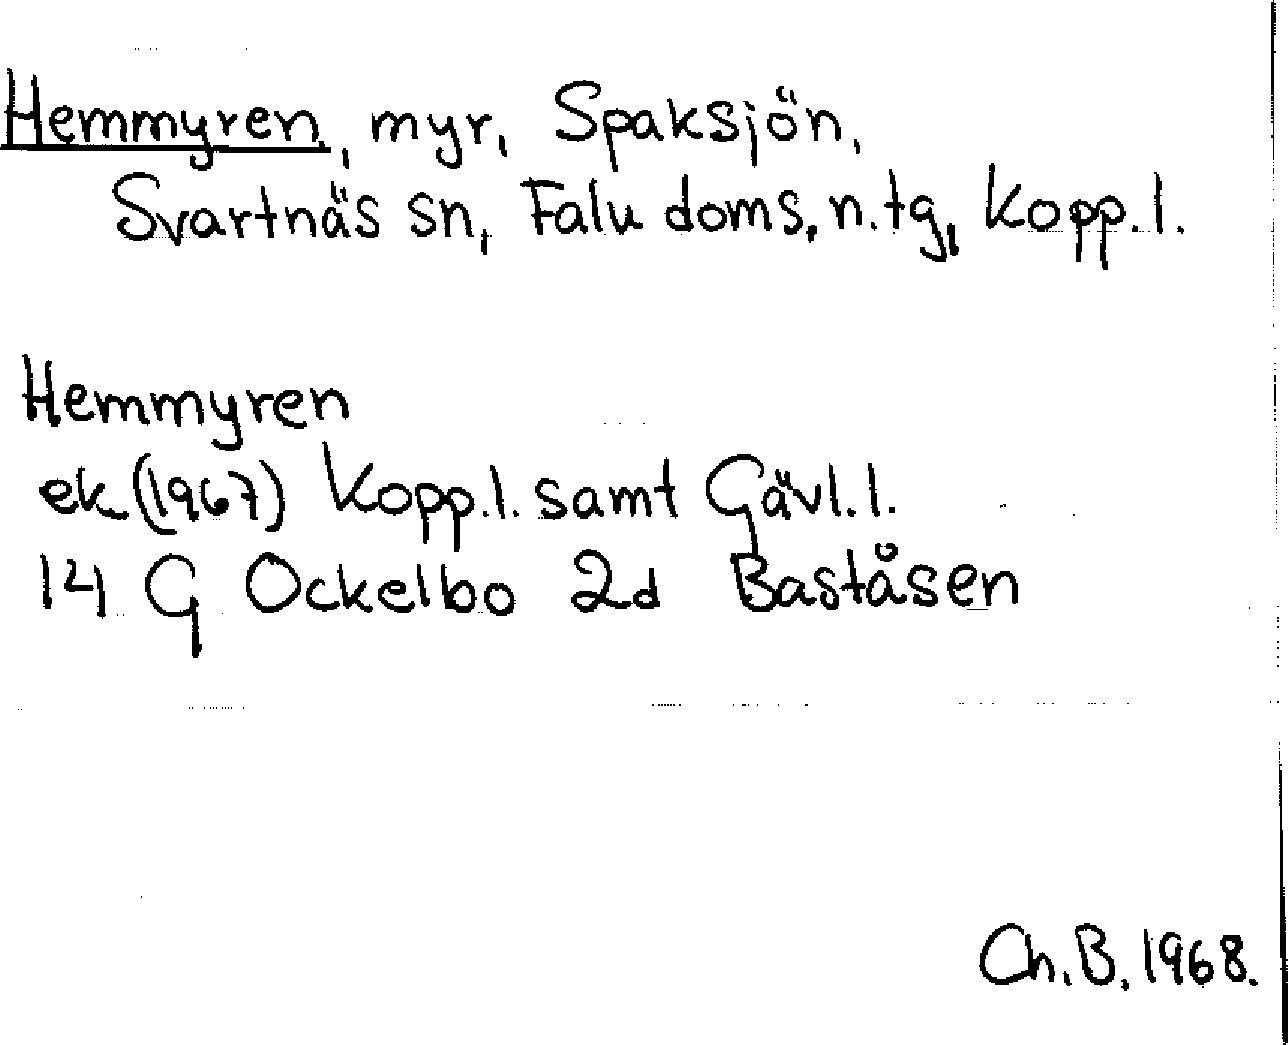 Hemmyren, myr, Spaksjön,
Svartnäs sn, Falu doms, n.tg, Kopp.l.
Hemmyren
ek (1967) Kopp.l. samt Gävl.l.
14 G Ockelbo 2d Baståsen
Ch.B. 1968.